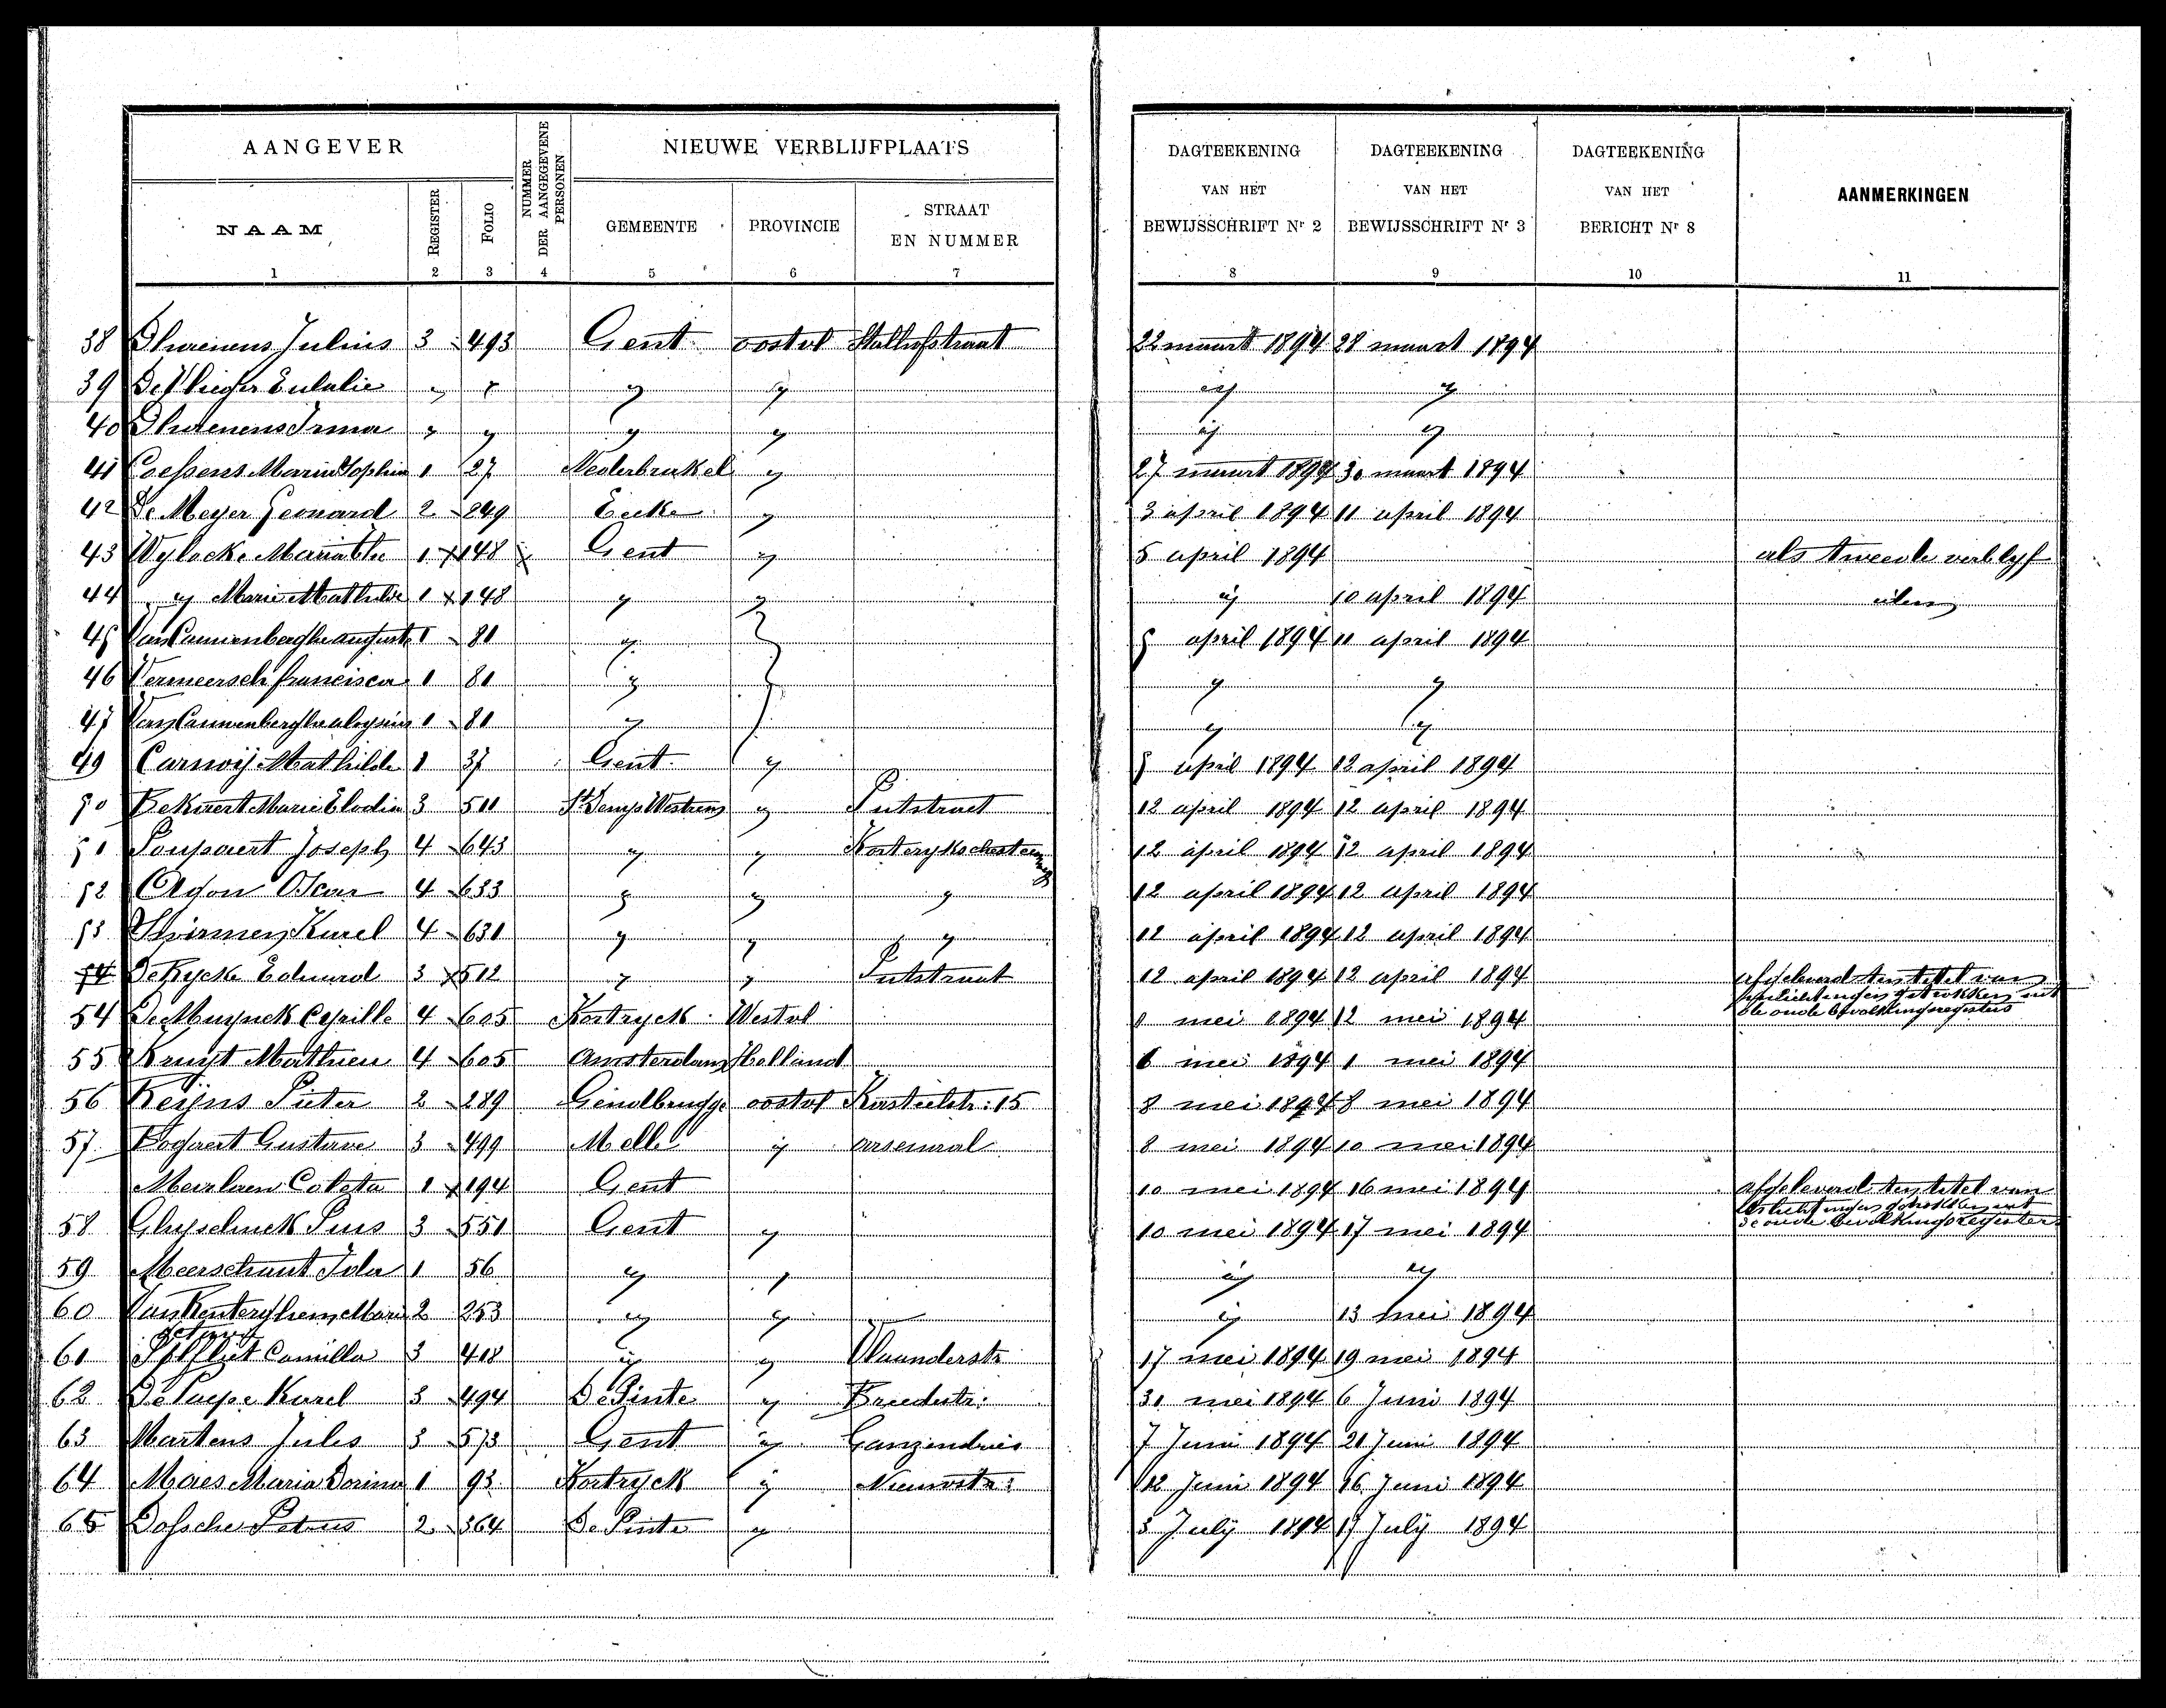 AANGEVER
NUMMER DER AANGEGEVENE PERSONEN
NIEUWE VERBLIJFPLAATS
DAGTEEKENING VAN HET BEWIJSSCHRIFT Nr 2
DAGTEEKENING VAN HET BEWIJSSCHRIFT Nr 3
DAGTEEKENING VAN HET BERICHT Nr 8
AANMERKINGEN
NAAM
REGISTER
FOLIO
GEMEENTE
PROVINCIE
STRAAT EN NUMMER
1 2 3 4 5 6 7 8 9 10 11
38 Julius 3 493 Gent oostvl 22 maart 1894 28 maart 1894
39 De Vlieger Eulalie " " " " " "
40 Irma " " " " " "
41 Maria Sophia 1 27 Nederbrakel " 27 maart 1894 30 maart 1894
42 De Meyer Leonard 2 249 Eecke " 3 april 1894 11 april 1894
43 Wylock 1 148 Gent " 5 april 1894 als tweede verblyf
44 " Marie Mathilde 1 148 " " " 10 april 1894 idem
45 1 81 " " april 1894 11 april 1894
46 Vermeersch francisca 1 81 " " " "
47 aloysius 1 81 " " " "
49 Carnoij Mathilde 1 37 Gent " april 1894 12 april 1894
50 Bekaert Marie Elodie 3 511 " Putstraat 12 april 1894 12 april 1894
51 Joseph 4 643 " " 12 april 1894 12 april 1894
52 Oscar 4 633 " " " 12 april 1894 12 april 1894
53 Karel 4 631 " " " 12 april 1894 12 april 1894
De Rycke Eduard 3 512 " " Putstraat 12 april 1894 12 april 1894 afgeleverd ten titel van
inlichtingen getrokken uit
de oude bevolkingregisters
54 De Muynck Cyrille 4 605 Kortryck Westvl mei 1894 12 mei 1894
55 4 605 Amsterdam Holland mei 1894 1 mei 1894
56 Reijns Pieter 2 289 Gendbrugge oostvl Kasteelstr: 15 8 mei 1894 8 mei 1894
57. Bogaert Gustave 3 499 Melle " arsenaal 8 mei 1894 10 mei 1894
Coleta 1 194 Gent 10 mei 1894 16 mei 1894 afgeleverd ten titel van
inlichtingen getrokken uit
de oude bevolkingsregister
58 Ghyselinck Pius 3 551 Gent " 10 mei 1894 17 mei 1894
59 Meerschaut Ida 1 56 " " " "
60 2 253 " " " 13 mei 1894
61 Camilla 3 418 " " Vlaanderstr 17 mei 1894 19 mei 1894
62 De Paepe Karel 3 494 De Pinte " Breedestr: 31 mei 1894 6 Juni 1894
63 Martens Jules 3 573 Gent " Ganzendries 7 Juni 1894 21 Juni 1894
64 Maes Maria Dorina 1 93 Kortryck " Nieuwstr: 12 Juni 1894 16 Juni 1894
65 Dossche Petrus 2 364 De Pinte " 5 July 1894 17 July 1894